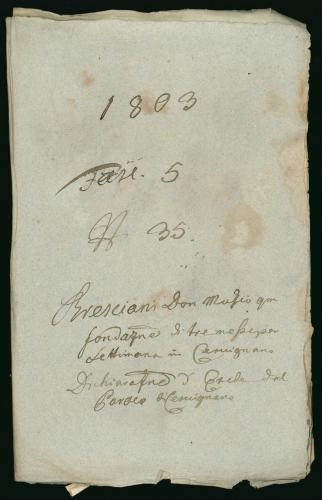 1803
Fasc. 5
N 35.
Bresciani Don Muzio qm
fondaz.ne di tre messe per
Settimana in Cervignano
Dichiaraz.ne d Erede del
Paroco di Cervignano